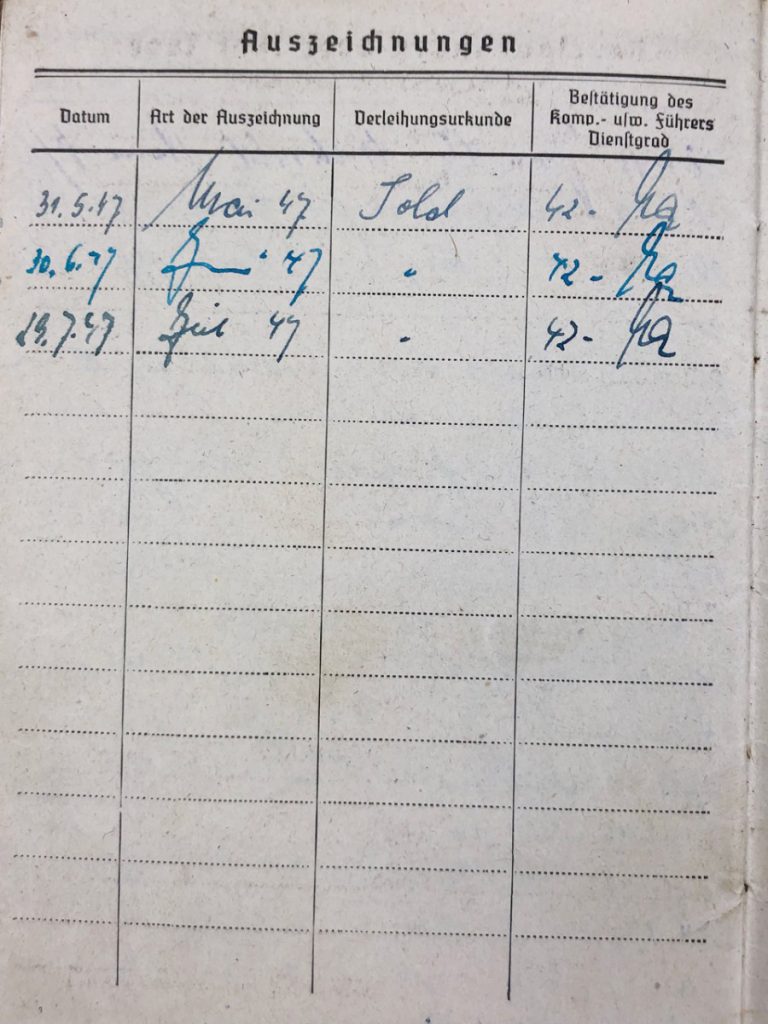 Auszeichnungen
Datum Art der Auszeichnung Verleihungsurkunde Bestätigung des
Komp.- usw. Führers
Dienstgrad
31.5.47 Mai 47 Sold 42-
30.6.47 Juni 47 " 42-
29.7.47 Juli 47 " 42-